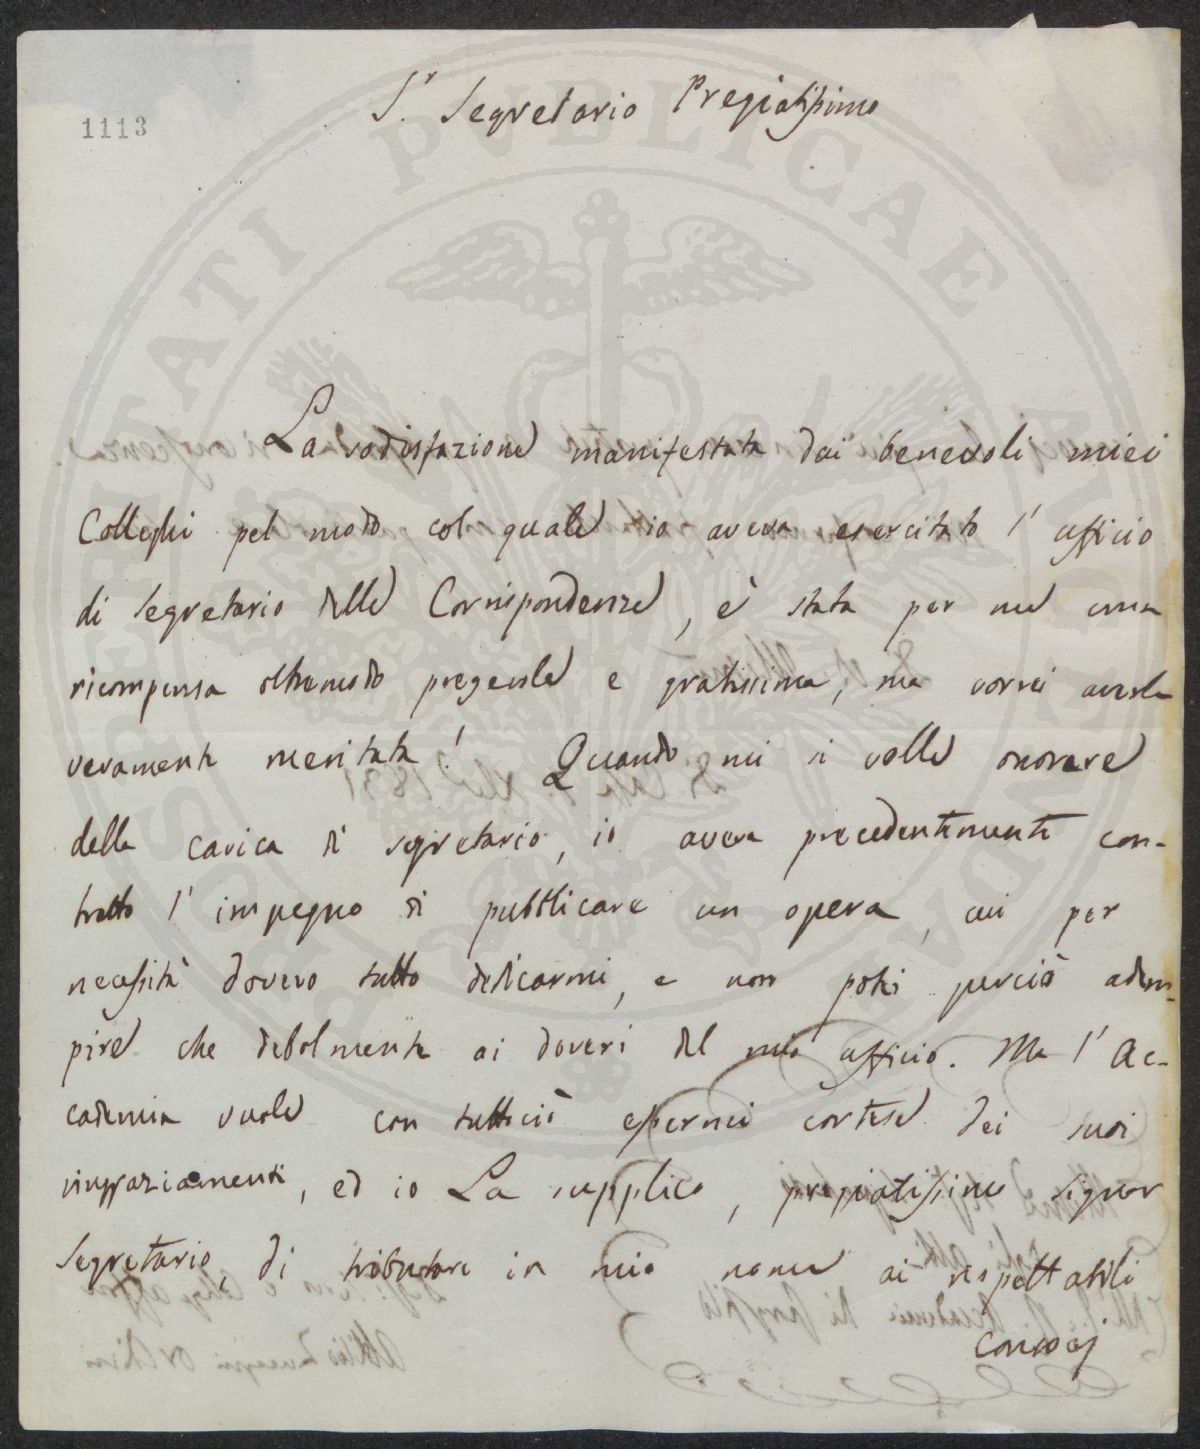 1113
S.r Segretario Pregiatissimo
La sodisfazione manifestata dai benevoli miei
Colleghi pel modo col quale io aveva esercitato l' ufficio
di Segretario delle Corrispondenze, è stata per me una
ricompensa oltremodo pregevole e gratissima, ma vorrei averla
veramente meritata! Quando mi si volle onorare
della carica di segretario, io aveva precedentemente con-
tratto l' impegno di pubblicare un opera, cui per
necessità dovevo tutto dedicarmi, e non potei perciò adem-
pire che debolmente ai doveri del mio ufficio. Ma l' Ac-
cademia vuole con tuttociò essermi cortese dei suoi
ringraziamenti, ed io La supplico, pregiatissimo Signor
Segretario, di tributare in mio nome ai rispettabili
Consocj